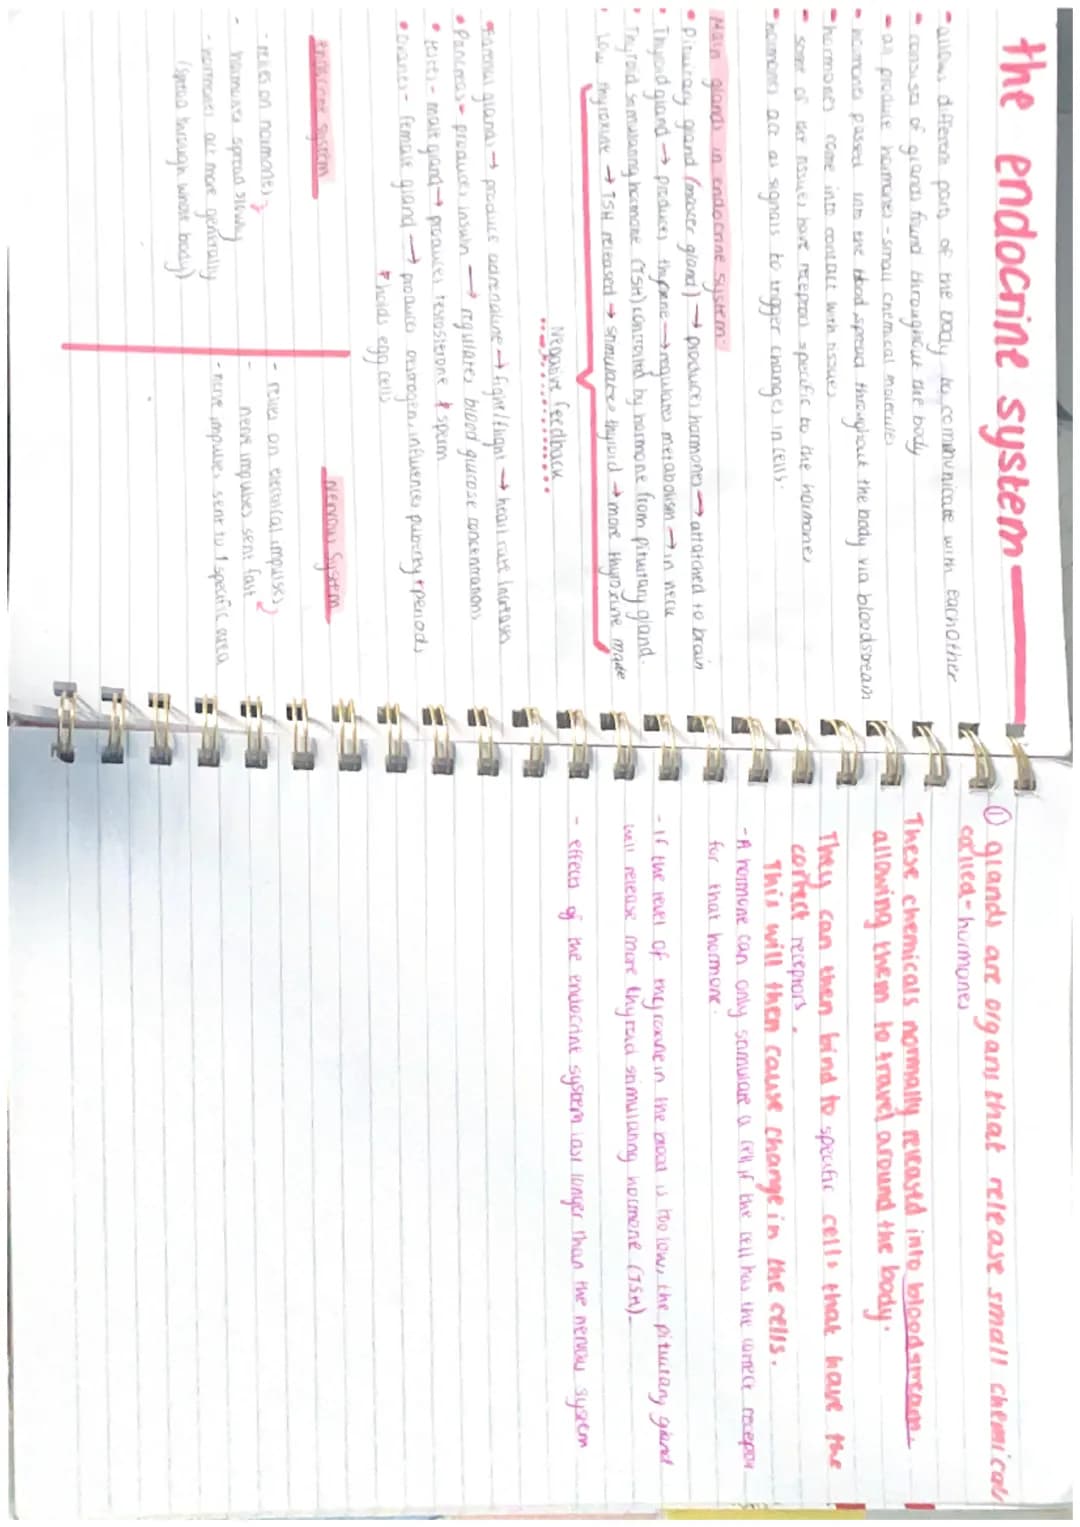 the endocrine system
• allows different parts of the body to communicate with eachother
• consists of glands found throughout the body
• all produce hormones - small chemical molecules
• hormones passed into the blood, spread throughout the body via bloodstream
• hormones come into contact with tissues
• some of the tissues have receptors specific to the hormones
• hormones act as signals to trigger changes in cells.
Main glands in endocrine system:
• pituitary gland (master gland) → produces hormones → attatched to brain
• Thyroid gland → produces thyroxine → regulates metabolism → in neck
Thyroid stimulating hormone (TSH) controlled by hormone from pituitary gland.
Low thyroxine → TSH released → stimulates thyroid → more thyroxine made
Negative feedback
gland → produce adrenaline → fight/flight → heart rate increases
• Pancreas → produces insulin → regulates blood glucose concentrations
• testes - male gland → produces testosterone & sperm
• Ovaries - female gland → produces oestrogen, influences puberty + periods
holds egg cells
Endocrine system
- relies on hormones
- hormones spread slowly
- hormones act more generally
(spread through whole body)
Nervous System
- relies on electrical impulses
- nerve impulses sent fast
- nerve impulses sent to 1 specific area
① glands are organs that release small chemicals
called - hormones
These chemicals normally released into bloodstream,
allowing them to travel around the body.
They can then bind to specific cells that have the
correct receptors.
This will then cause change in the cells.
- A hormone can only stimulate a cell if the cell has the correct receptor
for that hormone.
- If the level of thyroxine in the blood is too low, the pituitary gland
will release more thyroid stimulating hormone (TSH).
- effects of the endocrine system last longer than the nervous system